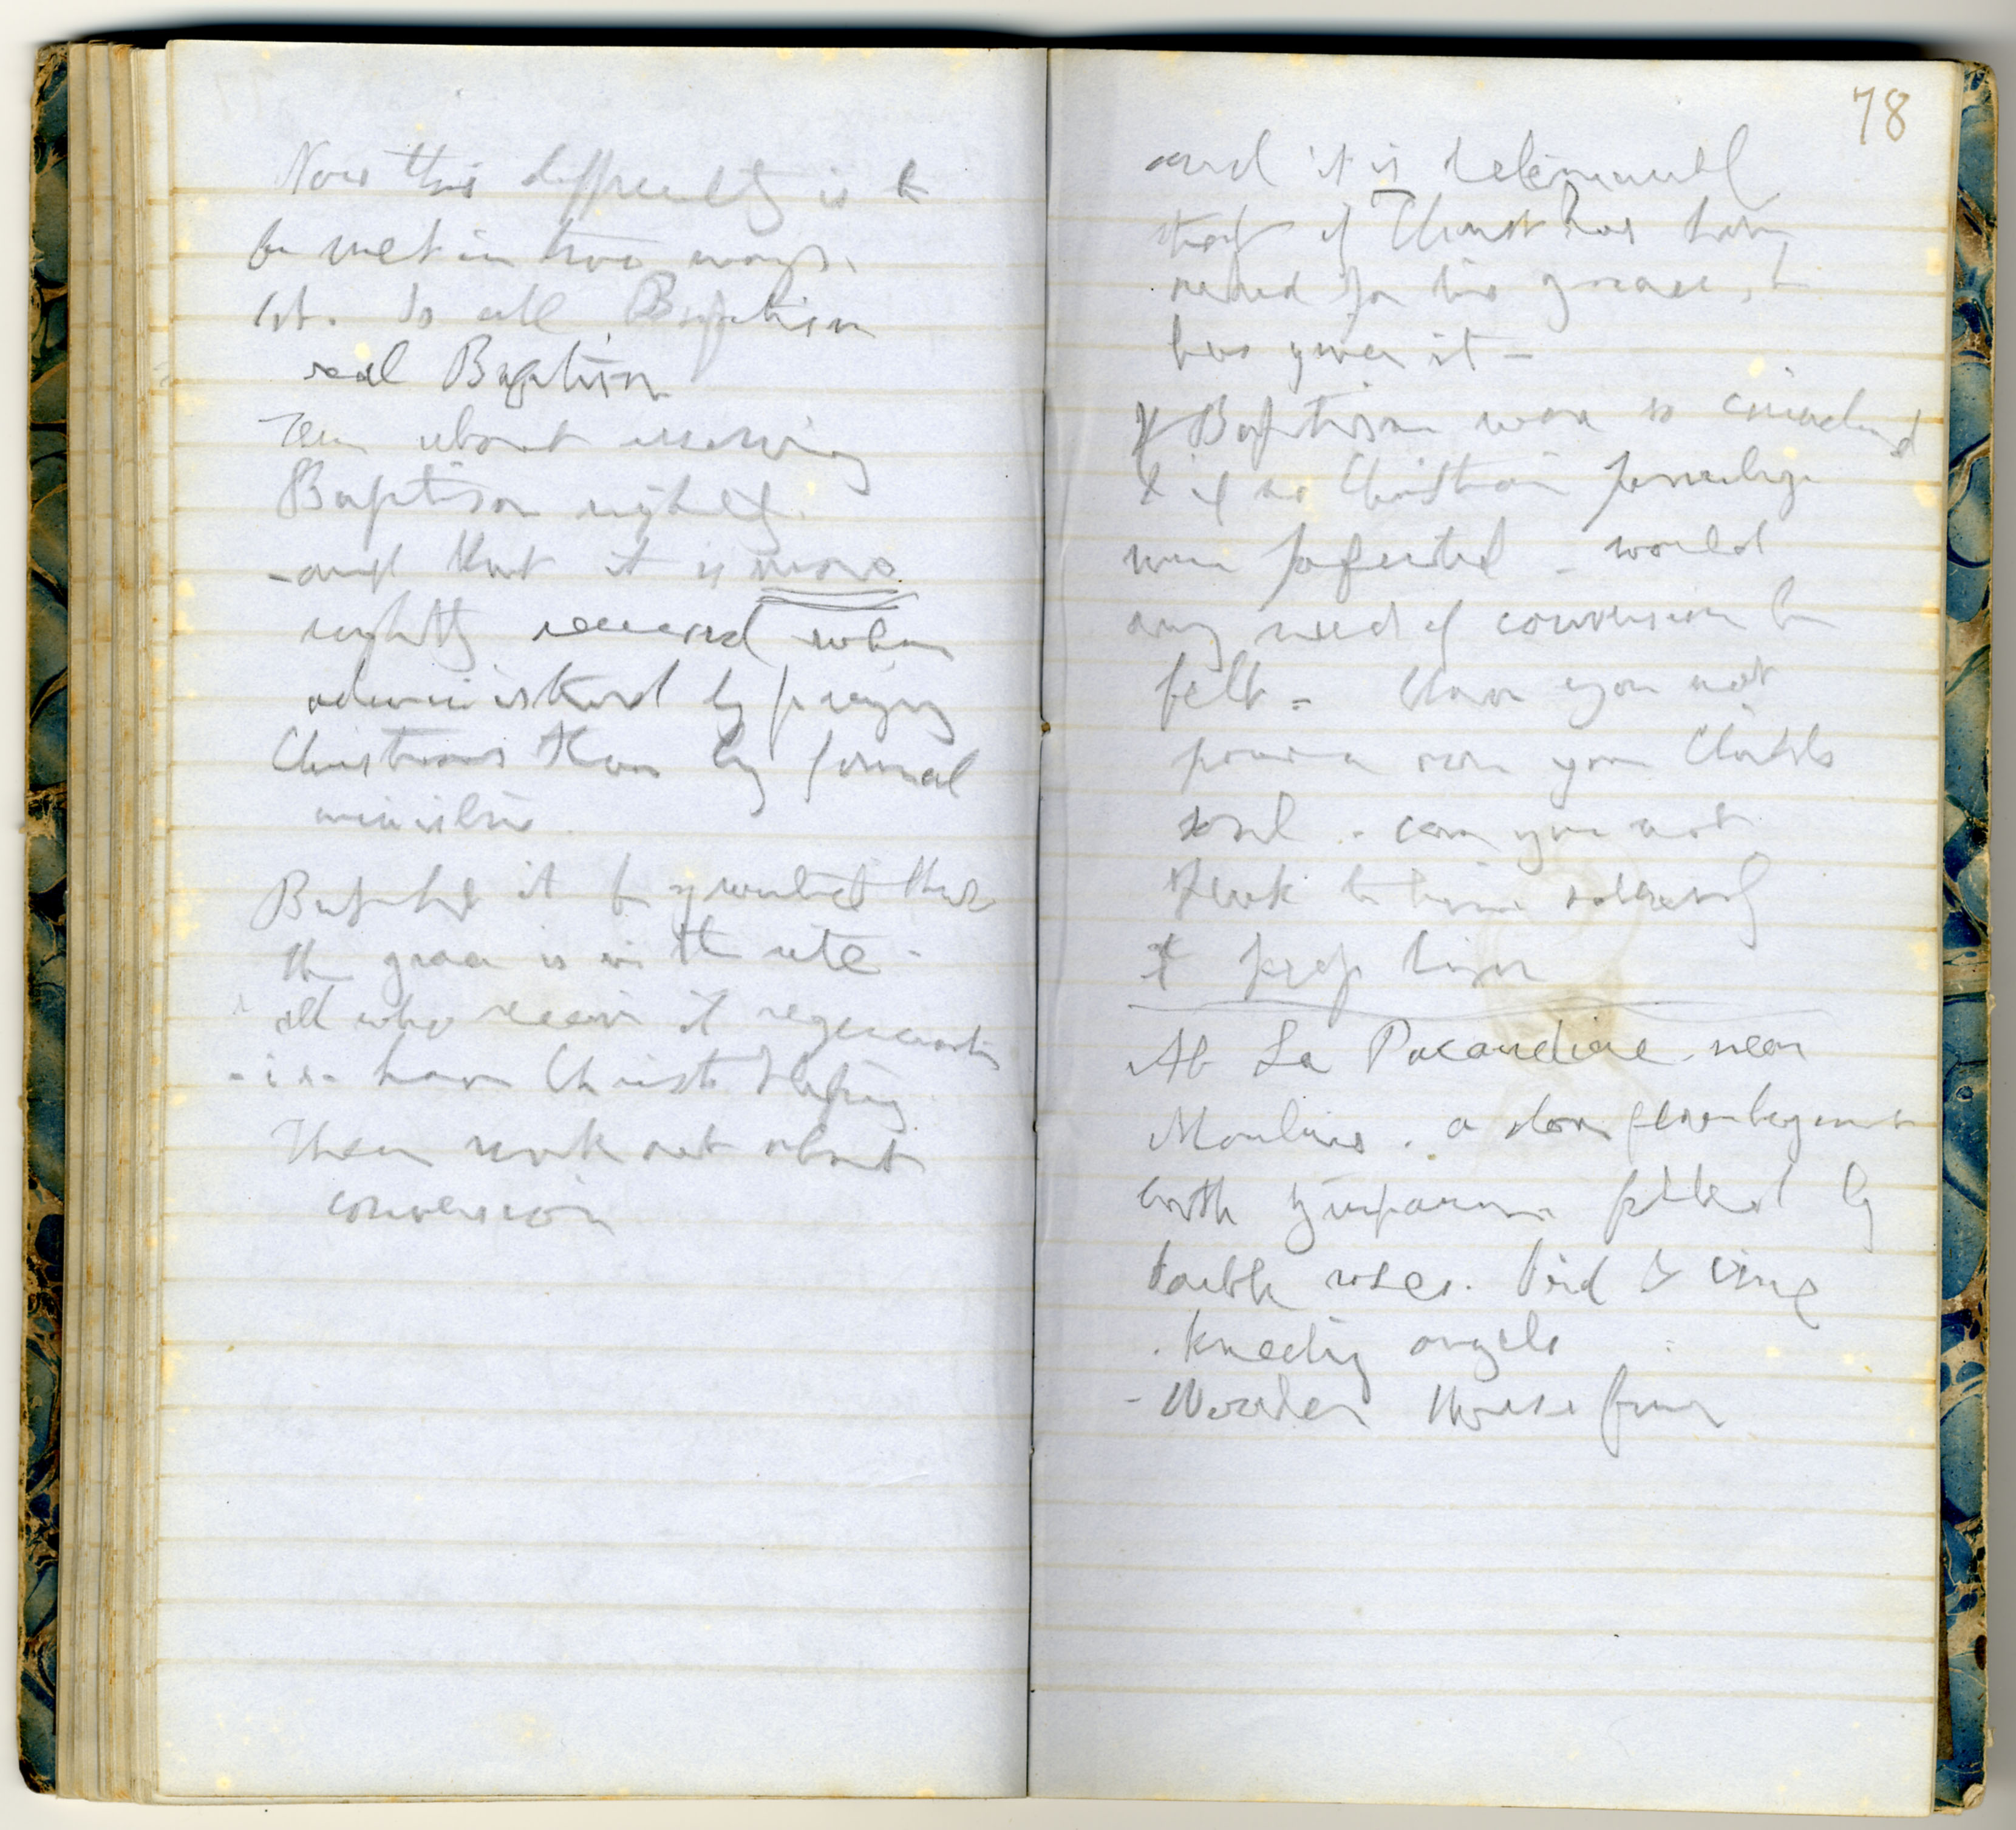 Now this difficulty is to
be met in two ways.
1st. Is all Baptism
real Baptism
Then about receiving
Baptism rightly.
- and that it is more
rightly received when
administered by praying
Christians than by formal
ministers.
But let it be granted that
the grace is in the rite -
all who receive it regenerate
- i.e. have Christs
Then work out about
conversion
78
and it is
that if Christ has
for his grace, he
has given it -
If Baptism were so
& if no Christian privilege
were - would
any need of conversion be
felt - Have you not
power over your Childs
soul - can you not
to him
& keep him
At La Pacaudiere near
Moulins . a door flamboyant
with filled by
double roses. bird & vine
. kneeling angels
- Wooden house